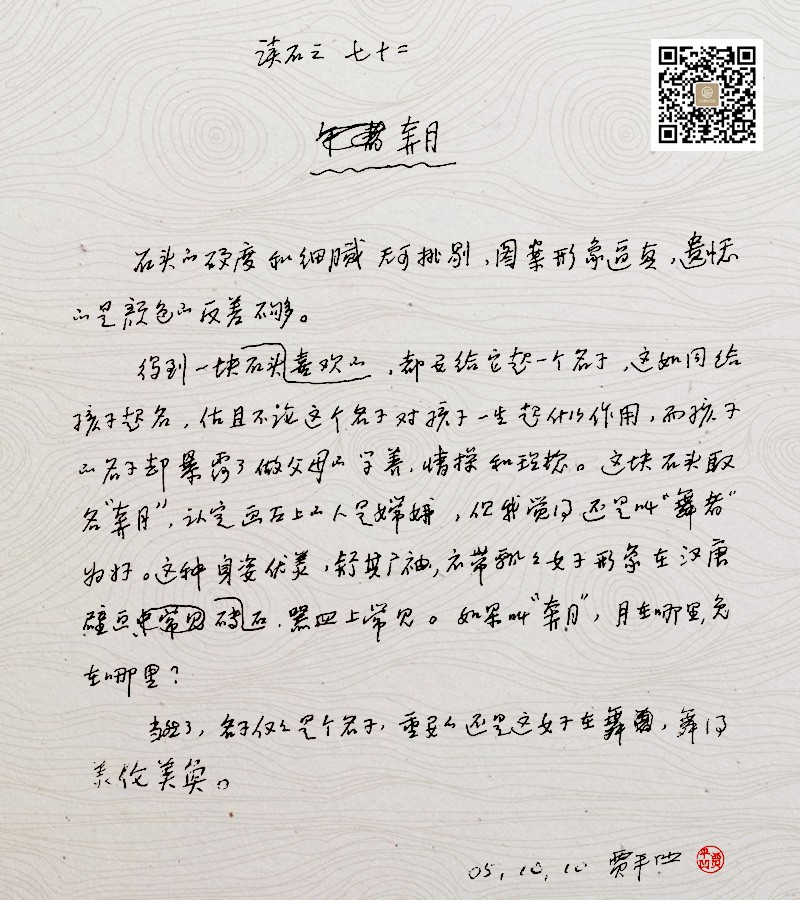 读石之 七十二
奔月
石头的硬度和细腻无可挑剔,图案形象逼真,遗憾
的是颜色的反差不够。
得到一块石头喜欢的,都要给它起一个名子,这如同给
孩子起名,估且不论这个名子对孩子一生起什么作用,而孩子
的名子却暴露了做父母的学养,情操和理想。这块石头取
名“奔月”,认定画石上的人是嫦娥,但我觉得还是叫“舞者”
为好。这种身姿优美,舒其广袖,衣带飘飘女子形象在汉唐
壁画中常见砖石、器皿上常见。如果叫“奔月”,月在哪里,兔
在哪里?
当然了,名子仅仅是个名子,重要的还是这女子在舞蹈,舞得
美伦美奂。
05,10,10 贾平凹